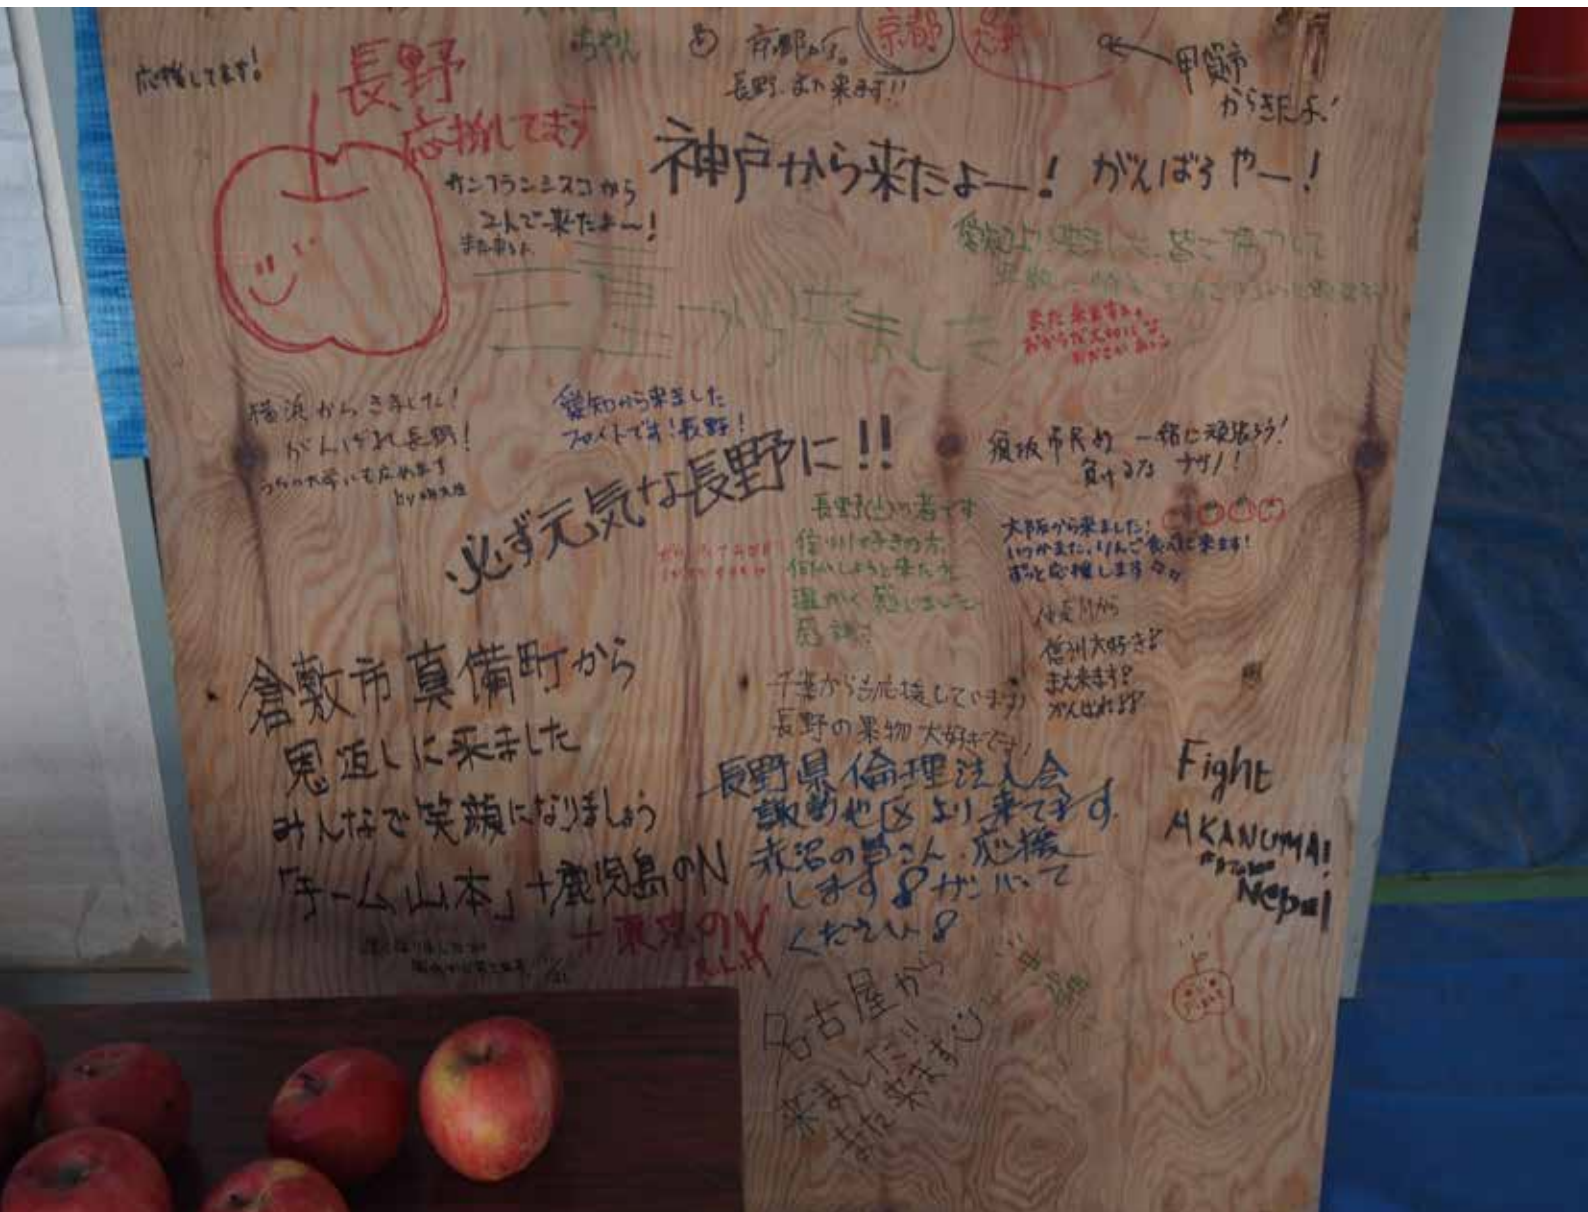 応援してます!
長野
応援してます
ちゃん
京都から。
長野、また来ます!!
京都
甲賀市
からきたよ!
神戸から来たよー! がんばろやー!
サンフランシスコから
とんで来たよ〜!
また来るよ
愛知より来ました。皆で協力して
三重から来ました
また来ますね。
おからだ大切にな
横浜からきました!
がんばれ長野!
by
愛知から来ました
ファイトです!長野!
必ず元気な長野に!!
須坂市民も 一緒に頑張ろう!
負けるな ナガノ!
長野(上)の者です
信州好きの方、
温かく感じました
感謝!
大阪から来ました!
いつかまた、りんご食べに来ます!
ずっと応援します
信州大好き!!
また来ます!!
がんばれ!!
倉敷市真備町から
恩返しに来ました
みんなで笑顔になりましょう
「チーム山本」+鹿児島のN
+東京のY
千葉から応援しています
長野の果物大好きです!
長野県倫理法人会
諏訪地区より来てます。
赤沼の皆さん、応援
します!!ガンバッて
ください!!
Fight
AKANUMA!
from
Nepal
名古屋から
来ました!!
また来ます